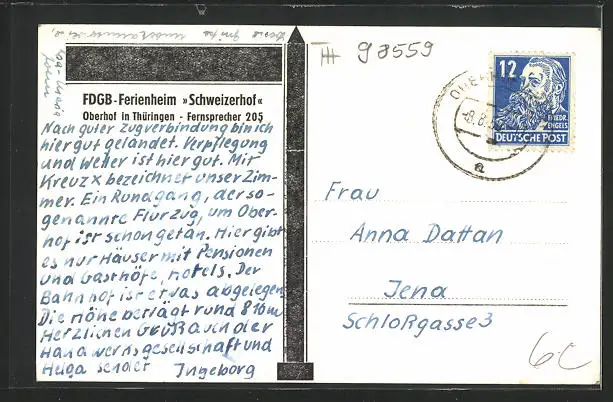 98559
FDGB-Ferienheim »Schweizerhof«
Oberhof in Thüringen - Fernsprecher 205
Nach guter Zugverbindung bin ich
hier gut gelandet. Verpflegung
und Wetter ist hier gut. Mit
Kreuz x bezeichnet unser Zim-
mer. Ein Rundgang, der so-
genannte Flurzug, um Ober-
hof ist schon getan. Hier gibt
es nur Häuser mit Pensionen
und Gasthöfe, Hotels. Der
Bahnhof ist etwas abgelegen.
Die Höhe beträgt rund 810m
Herzlichen Gruß auch der
Handwerksgesellschaft und
Helga sender Ingeborg
12
FRIEDR.
ENGELS
DEUTSCHE POST
a
Frau
Anna Dattan
Jena
Schloßgasse 3
6C